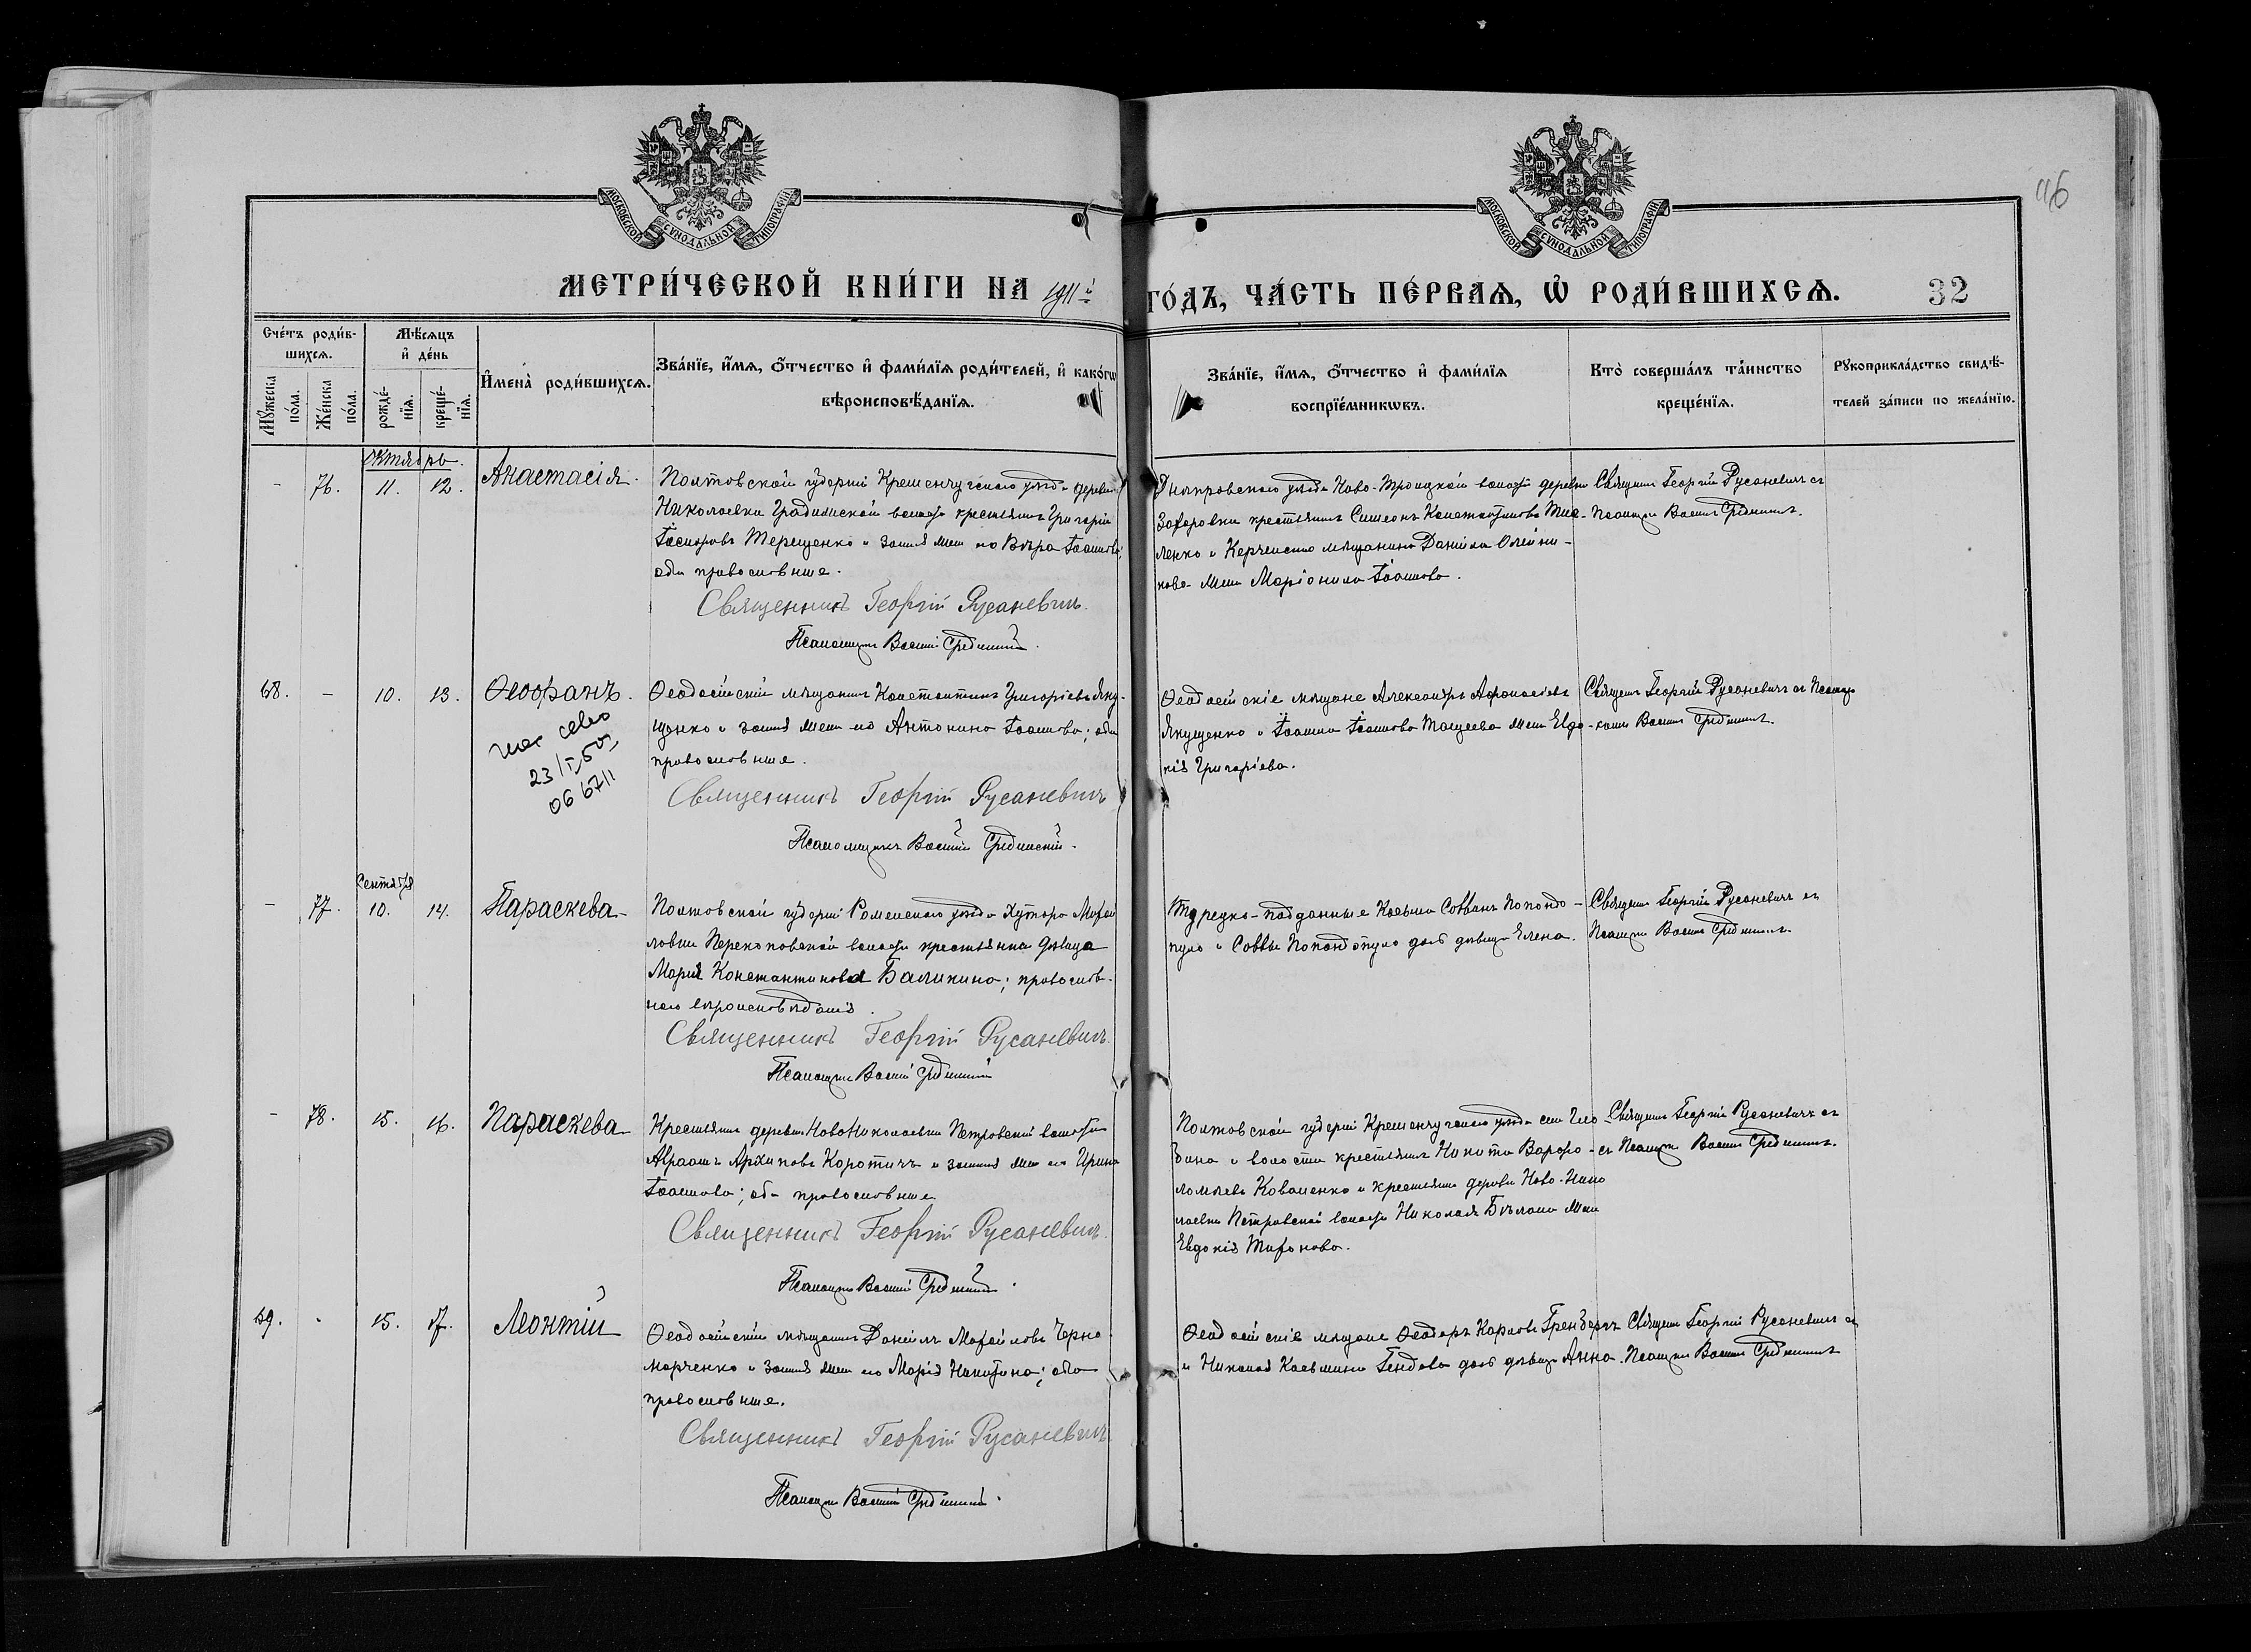 МОСКОВСКОЙ СѴНОДАЛЬНОЙ ТИПОГРАФІИ
МОСКОВСКОЙ СѴНОДАЛЬНОЙ ТИПОГРАФІИ
116
МЕТРИ́ЧЕСКОЙ КНИ́ГИ НА 1911й ГО́ДЪ, ЧА́СТЬ ПЕ́РВАѦ, Ѡ҆ РОДИ́ВШИХСѦ. 32
Сче́тъ роди́в-
шихсѧ.
Мѹ́жеска по́ла.
Же́нска по́ла.
Мѣ́сѧцъ
и҆ де́нь
рожде́-
нїѧ.
креще́-
нїѧ.
И҆мена̀ роди́вшихсѧ.
Зва́нїе, и҆́мѧ, ѻ҆́тчество и҆ фами́лїѧ роди́телей, и҆ како́гѡ
вѣроисповѣ́данїѧ.
Зва́нїе, и҆́мѧ, ѻ҆́тчество и҆ фами́лїѧ
воспрїе́мникѡвъ.
Кто̀ соверша́лъ та́инство
креще́нїѧ.
Рѹкоприкла́дство свидѣ́-
телей за́писи по жела́нїю.
Октябрь.
- 76. 11. 12. Анастасія.
Полтовской губерніи Кременчугскаго уѣзда деревни
Николаевки Градижской волости крестьянинъ Григорій
Терещенко и законная жена его Вѣра Іоаннова;
оба православные.
Священникъ Георгій Русаневичъ.
Псаломщикъ Василій
Днѣпровскаго уѣзда Ново-Троицкой волости деревни
крестьянинъ Симеонъ Константиновъ
ленко и Керченскаго мѣщанина Даніила Олейни-
кова жена Маріонила Іоаннова.
Священникъ Георгій Русаневичъ съ
Псаломщ. Василіемъ
68. - 10. 13. Ѳеофанъ.
23/I,50
06 6711
Ѳеодосійскій мѣщанинъ Константинъ Григорьевъ Яку-
щенко и законная жена его Антонина Іоаннова; оба
православные.
Священникъ Георгій Русаневичъ
Псаломщикъ Василій
Ѳеодосійскіе мѣщане Александръ Аѳонасіевъ
Якущенко и Іоанна Іоаннова жена Евдо-
кія Григоріева.
Священ. Георгій Русаневичъ съ Псалом-
Василіемъ
Сентября
- 77. 10. 14. Параскева
Полтовской губерніи Роменскаго уѣзда Хутора
ловки Перекоповской волости крестьянка дѣвица
Марія Константинова Балакина; православ-
наго вѣроисповѣданія.
Священникъ Георгій Русаневичъ.
Псаломщикъ Василій
Турецко-подданные Косьма Саввинъ Попондо-
пуло и Саввы Попондопуло дочь дѣвица Елена.
Священ. Георгій Русаневичъ съ
Псаломщ. Василіемъ
- 78. 15. 16. Параскева
Крестьянинъ деревни НовоНиколаевки Петровской волости
Авраамъ Архиповъ Коротичъ и законная жена его Ирина
Іоаннова; оба православные
Священникъ Георгій Русаневичъ.
Псаломщикъ Василій
Полтовской губерніи Кременчугскаго уѣзда села Гло-
бина и волости крестьянинъ Никита Варѳо-
ломѣевъ Коваленко и крестьянина деревни Ново-Нико
лаевки Петровской волости Николая Бѣлаша жена
Евдокія Тифонова.
Священ. Георгій Русаневичъ съ
Псаломщ. Василіемъ
69. - 15. 17. Леонтій
Ѳеодосійскій мѣщанинъ Даніилъ Черно
марченко и законная жена его Марія Никитина; оба
православные.
Священникъ Георгій Русаневичъ
Псаломщ. Василій
Ѳеодосійскіе мѣщане Ѳеодоръ Карловъ Гренбергъ
и Николая Косьмина дочь дѣвица Анна.
Священ. Георгій Русаневичъ съ
Псаломщ. Василіемъ